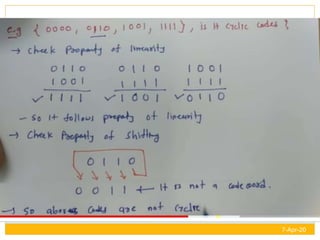 e.g { 0000, 0110, 1001, 1111 }, is it cyclic codes ?
→ Check Property of linearity
0110 0110 1001
1001 1111 1111
✓ 1111 ✓ 1001 ✓ 0110
- So it follows property of linearity
→ Check Property of Shifting
0 1 1 0
0 0 1 1 ← It is not a codeword.
→ So above codes are not cyclic
7-Apr-20